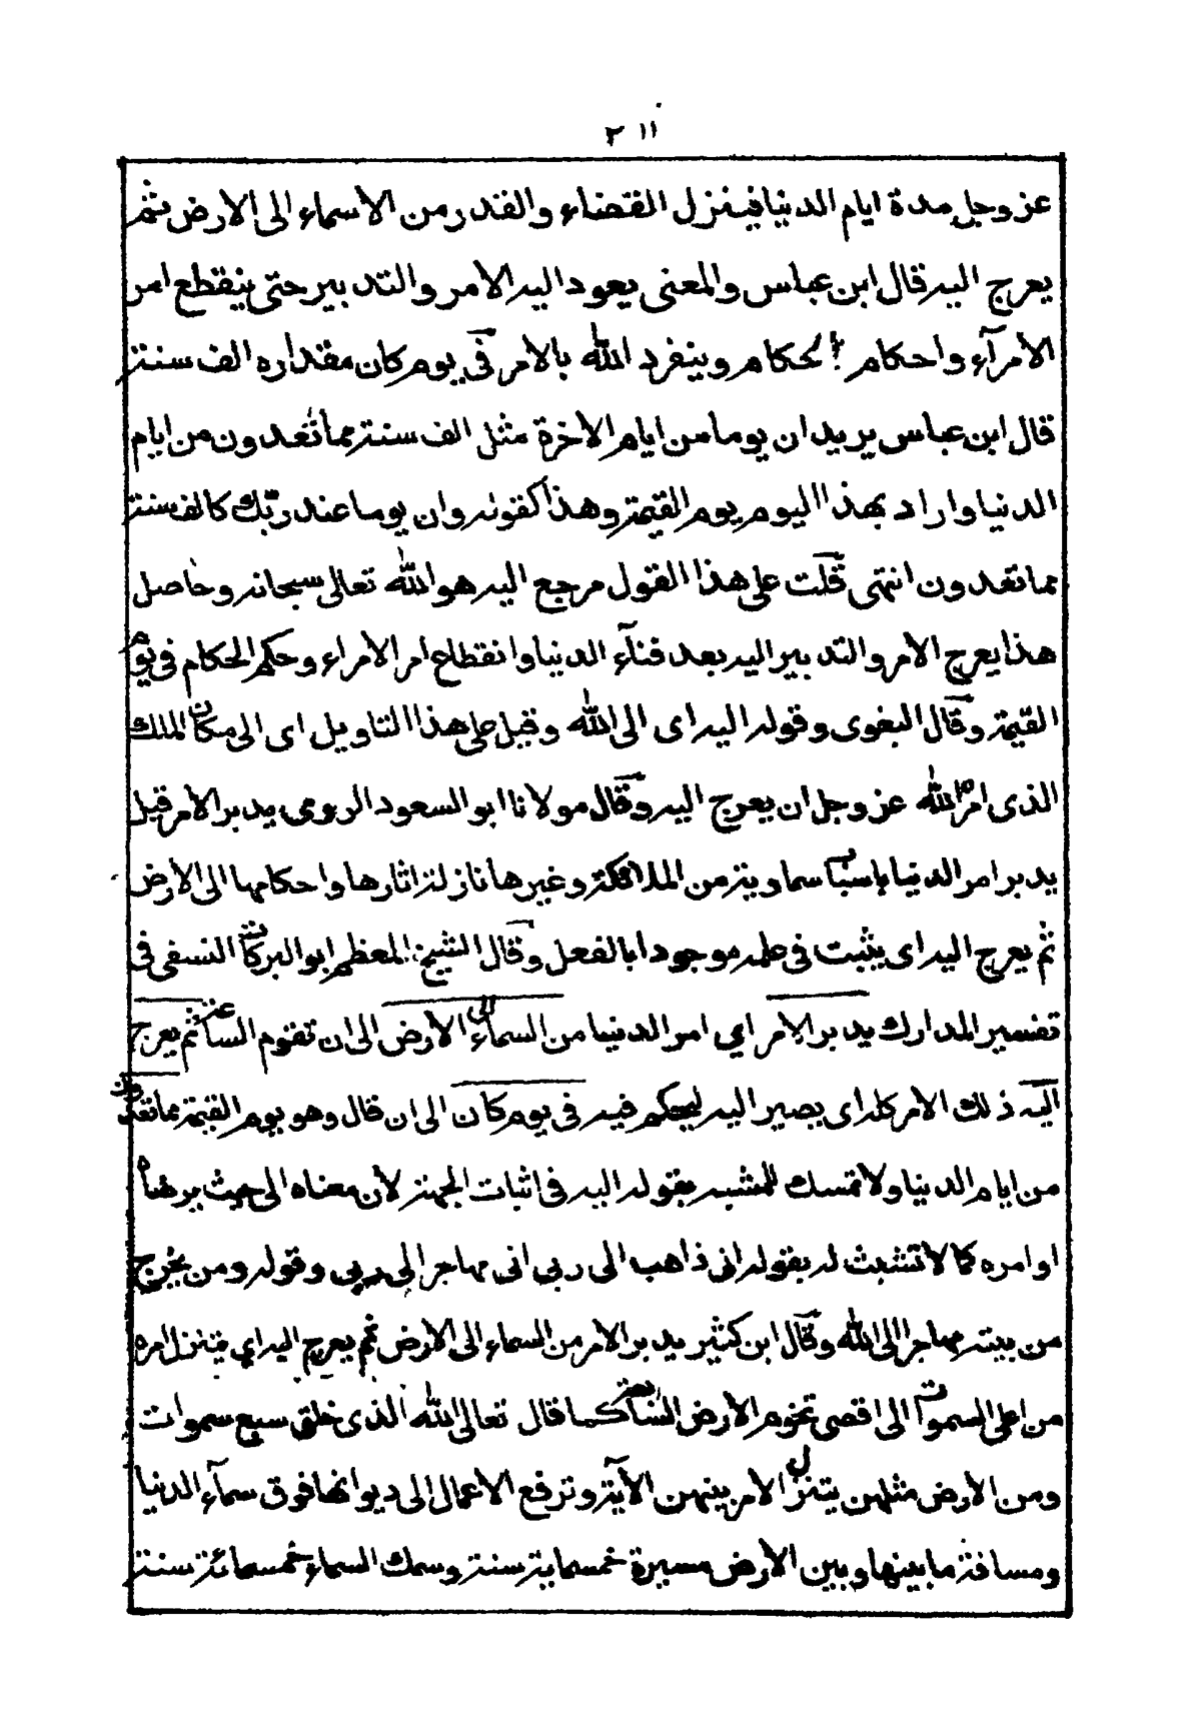 ٢١١
عز وجل مدة ايام الدنيا فينزل القضاء والقدر من الاسماء الى الارض ثم
يعرج اليه قال ابن عباس والمعنى يعود اليه الامر والتدبير حتى ينقطع امر
الامرآء واحكام الحكام وينفرد الله بالامر في يوم كان مقداره الف سنة
قال ابن عباس يريد ان يوما من ايام الاخرة مثل الف سنة مما تعدون من ايام
الدنيا واراد بهذا اليوم يوم القيمة وهذا كقوله وان يوما عند ربّك كالف سنة
مما تعدون انتهى قلت على هذا القول مرجع اليه هو الله تعالى سبحانه وحاصل
هذا يعرج الامر والتدبير اليه بعد فنآء الدنيا وانقطاع امر الامراء وحكم الحكام في يوم
القيمة وقال البغوى وقوله اليه اى الى الله وقيل على هذا التاويل اى الى مكان الملك
الذى امره الله عز وجل ان يعرج اليه وقال مولانا ابو السعود الرومى يدبر الامر قيل
يدبر امر الدنيا باسباب سماوية من الملائكة وغيرها نازلة اثارها واحكامها الى الارض
ثم يعرج اليه اى يثبت في علمه موجودا بالفعل وقال الشيخ المعظم ابو البركات النسفى فى
تفسير المدارك يدبر الامر اي امر الدنيا من السماء الى الارض الى ان تقوم الساعة ثم يعرج
اليه ذلك الامر كله اى يصير اليه ليحكم فيه فى يوم كان الى ان قال وهو يوم القيمة مما تعدون
من ايام الدنيا ولا تمسك للمشبه بقوله اليه فى اثبات الجهة لان معناه الى حيث يرضاه
او امره كما لا تشبث له بقوله انى ذاهب الى ربى انى مهاجر الى ربى وقوله ومن يخرج
من بيته مهاجرا الى الله وقال ابن كثير يدبر الامر من السماء الى الارض ثم يعرج اليه اي يتنزل امره
من اعلى السموات الى اقصى تخوم الارض السابعة كما قال تعالى الله الذى خلق سبع سموات
ومن الارض مثلهن يتنزل الامر بينهن الآية وترفع الاعمال الى ديوانها فوق سمآء الدنيا
ومسافة ما بينها وبين الارض مسيرة خمسماية سنة وسمك السماء خمسمائة سنة